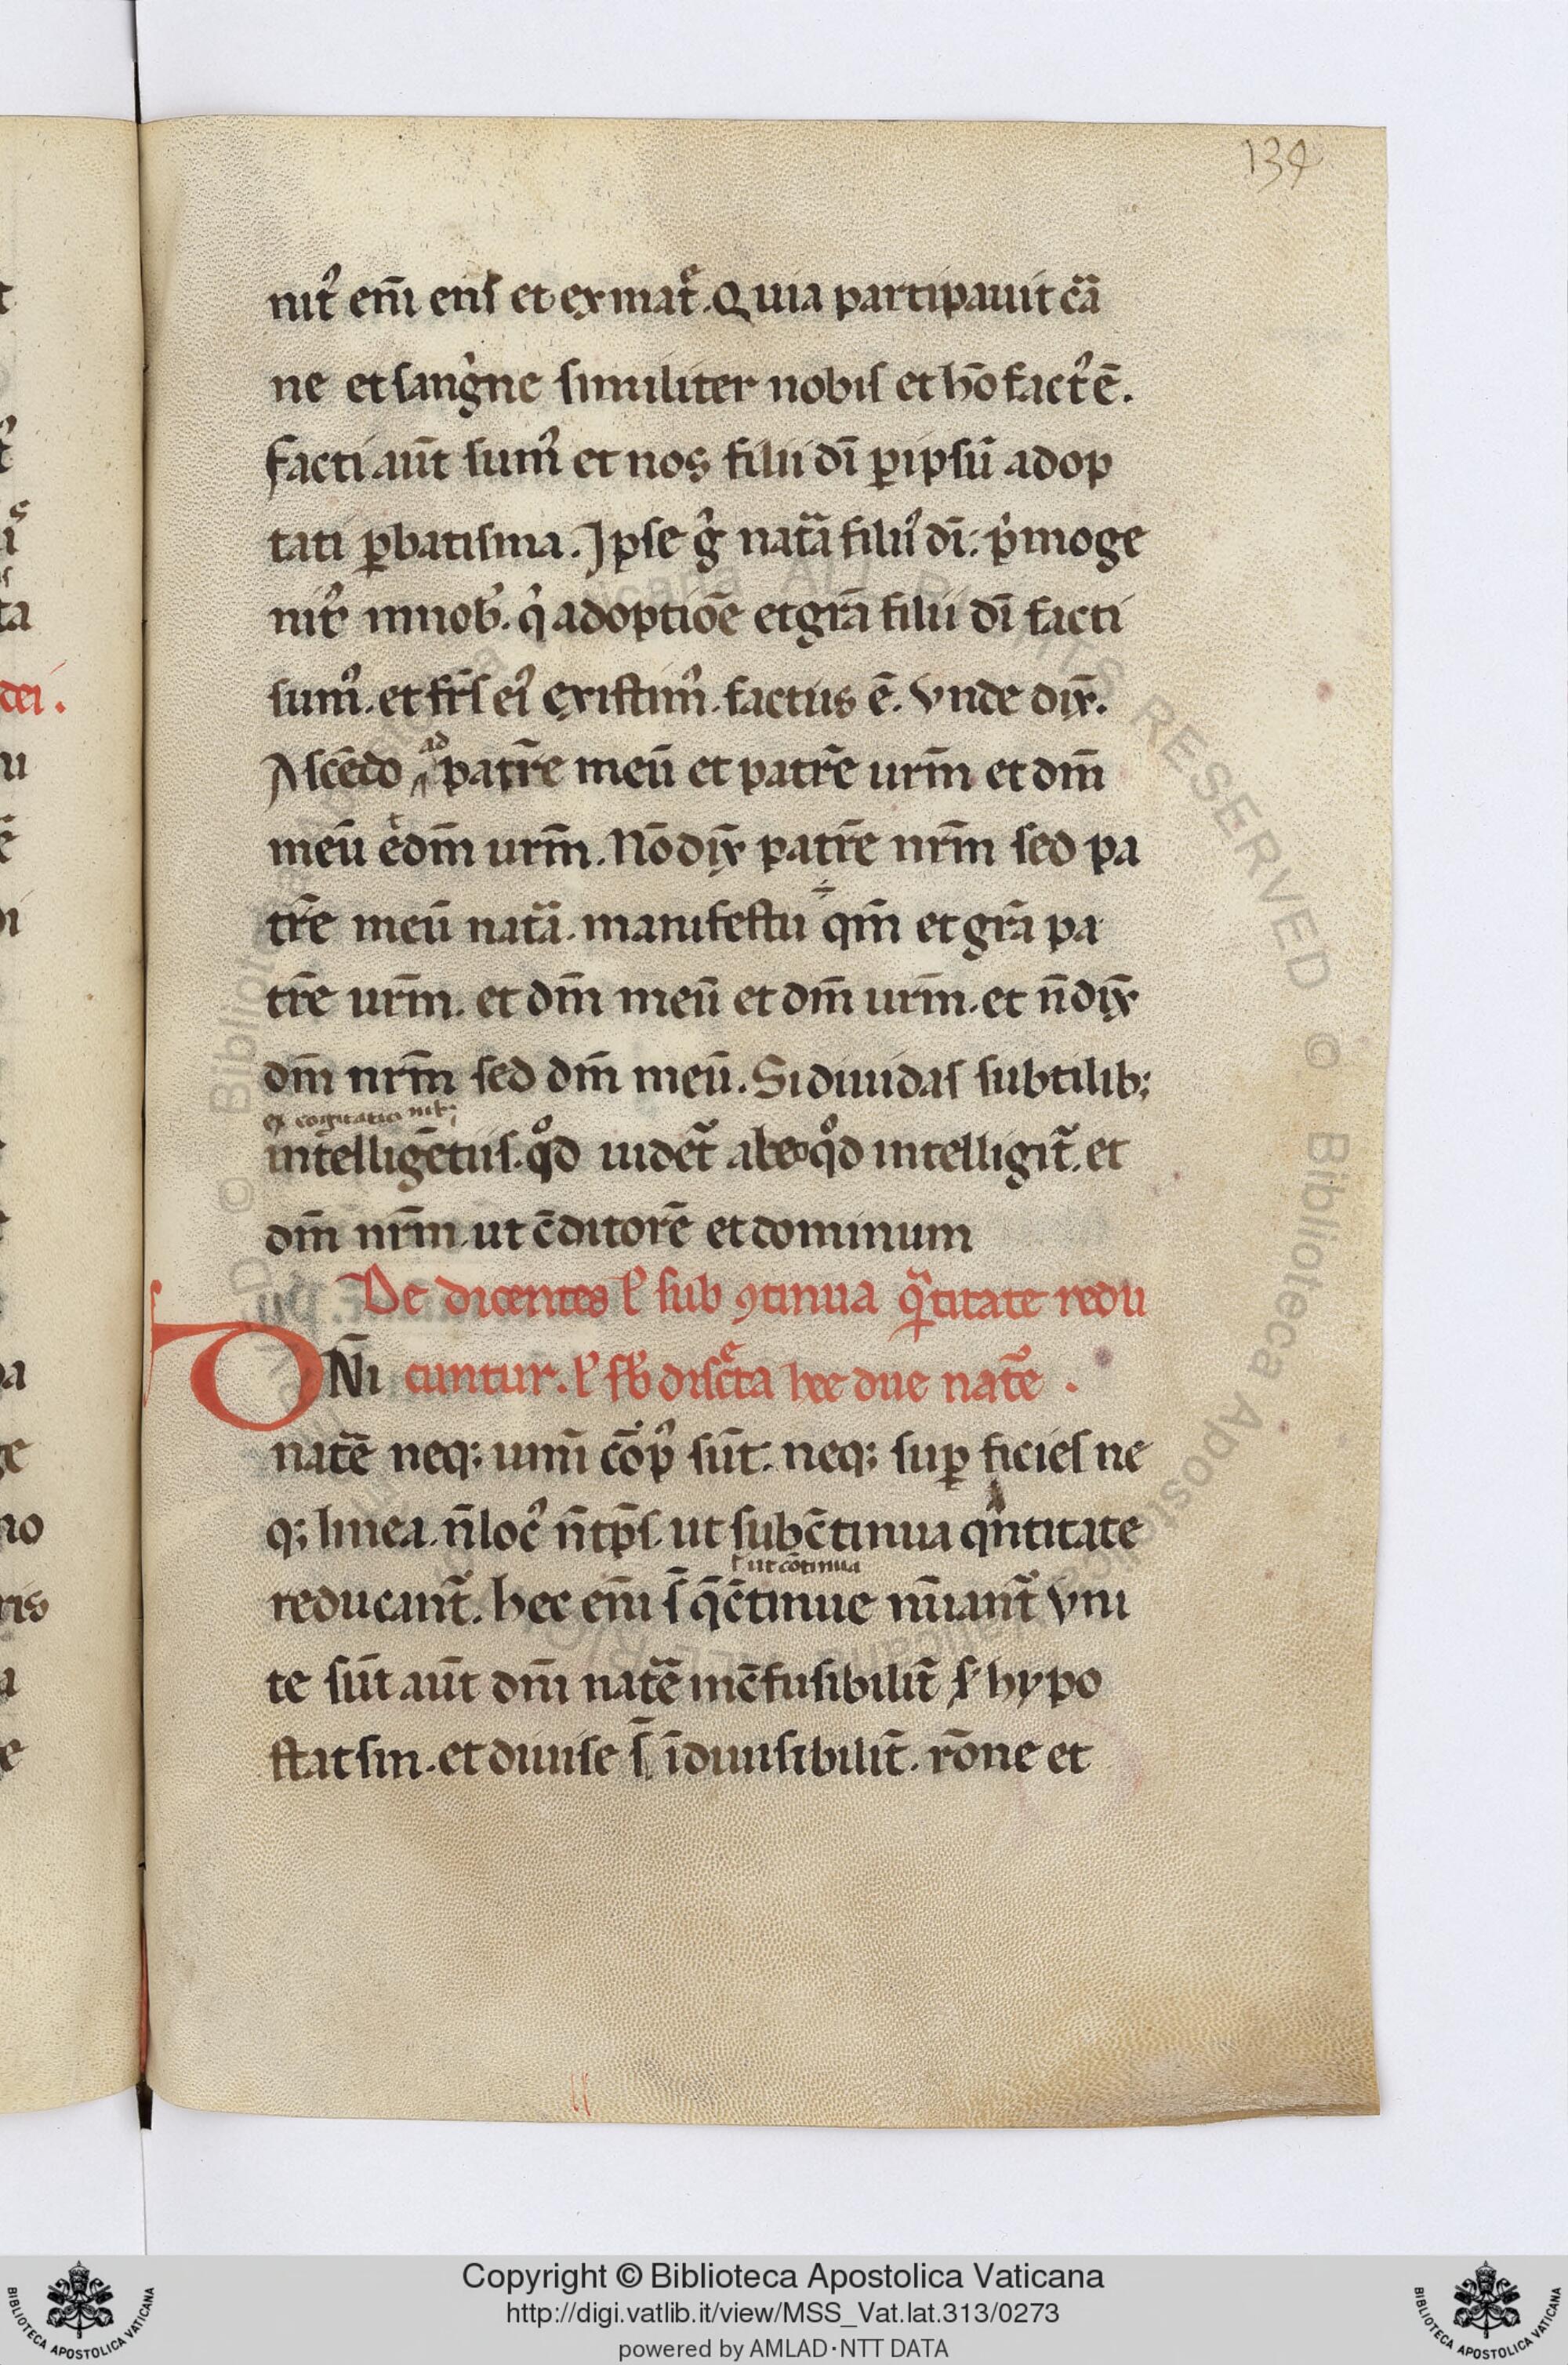 134
nit᷑ eni̅ ens et ex mat͛. Quia partipauit ca̅
ne et sang̍ne similiter nobis et ho̅ fact᷒ e̅.
facti au̅t sum᷒ et nos filii di̅ ꝑ ipsu̅ adop
tati ꝑ batisma. Ipse g̊ nata̅ filiꝰ di̅: p̍moge
nitꝰ in nob̵. q̍ adoptio̅e et gra̅ filii di̅ facti
sumꝰ. et fr̅s eiꝰ existimꝰ. factus e̅. Vnde dix̅.
Asce̅do ad patre̅ meu̅ et patre̅ ur̅m et dm̅
meu̅ et dm̅ ur̅m. No̅ dix̅ patre̅ nr̅m sed pa
tre̅ meu̅ nata̅. manifestu ÷ qm̅ et gra̅ pa
tre̅ ur̅m. et dm̅ meu̅ et dm̅ ur̅m. et n̅ dix̅
dm̅ nr̅m sed dm̅ meu̅. Si diuidas subtilib;
ex cogitationib;
intellige̅tiis. qd̊ uidet᷑ ab eo qd̊ intelligit᷑. et
dm̅ nr̅m ut c̅ditore̅ et dominum
De dicentes ł sub ꝯtinua qᷓ̅titate redu
D Ni̅ cuntur. ł sb̵ discͤta hee due nat᷑e.
nat᷑e neq; unu̅ co̅pꝰ su̅t. neq; suꝑficies ne
q; linea. n̅ locꝰ n̅ tp̅s. ut sub c̅tinua qᷓntitate
ut co̅tinua
reducant᷑. hec eni̅ s̅ q̅ c̅tinue nu̅iant᷑ Vni
te su̅t au̅t dni̅ nat᷑e i̅nc̅fusibilit᷑ s̵ hypo
statsin. et diuise s̅ i̅diuisibilit᷑. ro̅ne et
dei.
Copyright © Biblioteca Apostolica Vaticana
http://digi.vatlib.it/view/MSS_Vat.lat.313/0273
powered by AMLAD·NTT DATA
BIBLIOTECA APOSTOLICA VATICANA
BIBLIOTECA APOSTOLICA VATICANA